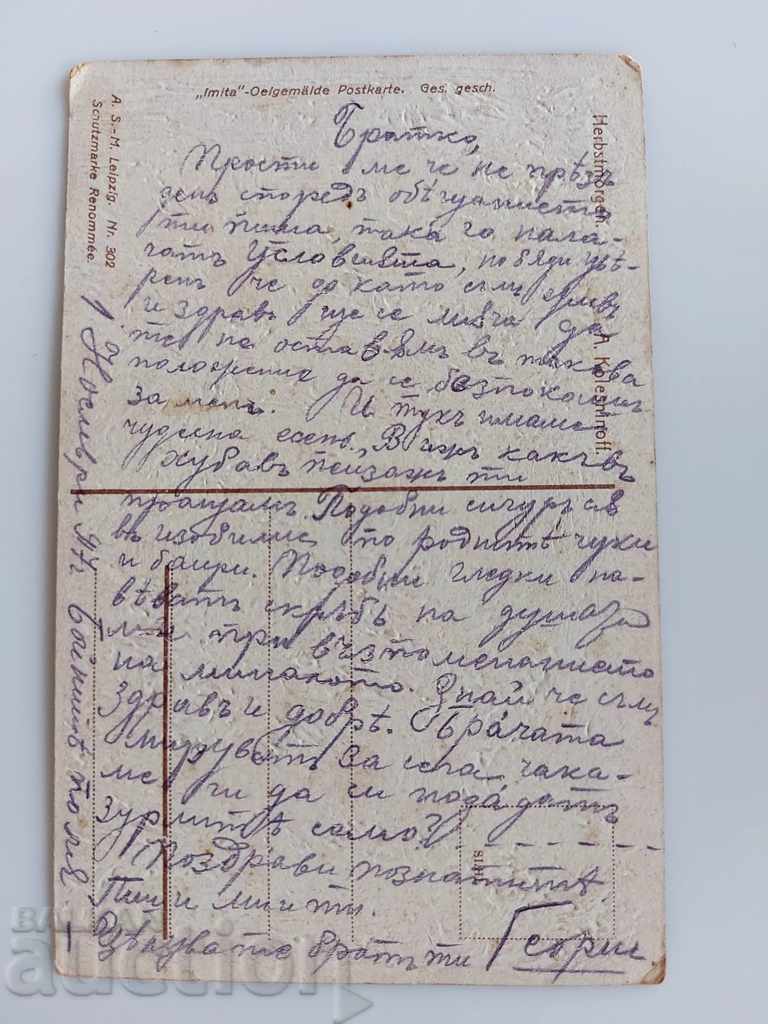 „Imita"-Oelgemälde Postkarte. Ges. gesch.
A. S.-M. Leipzig. Nr. 302
Schutzmarke Renommée.
Herbstmorgen.
A. Kolesnikoff.
Братко,
Прости ме че не прѣзъ
день споредъ обѣщанието
ти пиша, така го нала-
гатъ условията, но бѫди увѣ-
ренъ че до като съмъ живъ
и здравъ ще се мѫча да
те не оставямъ въ такова
положение да се безпокоишъ
за мене. И тукъ имаме
чудесна есень. Вижъ какъвъ
хубавъ пейзажъ ти
пращамъ. Подобни
въ изобилие по роднитѣ чуки
и баири. Подобни гледки на-
вѣватъ скръбь на душата
ми при възпоменанието
на миналото. Знай че съмъ
здравъ и добрѣ. Братята
мируватъ за сега чака-
ме ги да си подадатъ
зурлитѣ само?
Поздрави познатитѣ.
Пиши ми и ти.
Цѣлува те братъ ти Георги
Ноемврий 17 г. Бойнитѣ полия